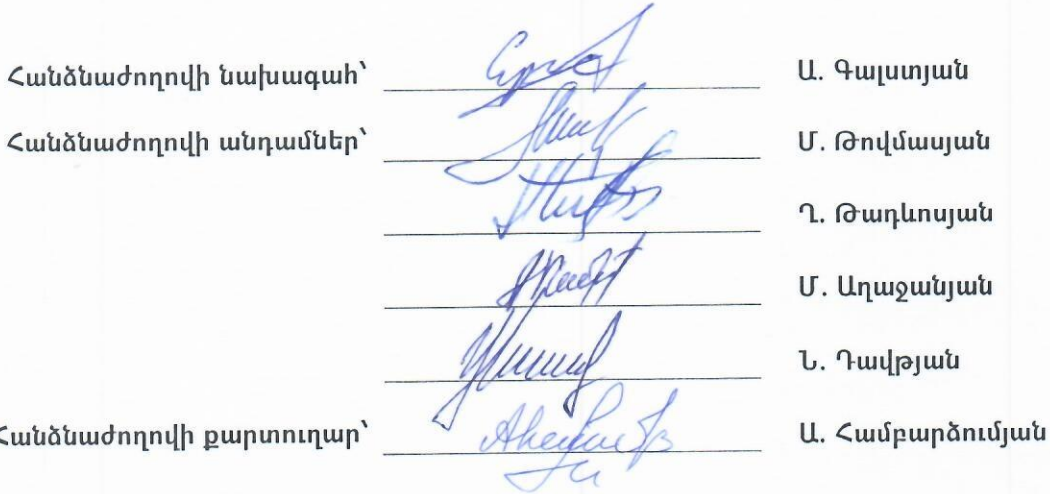 Հանձնաժողովի նախագահ՝ Ա. Գալստյան
Հանձնաժողովի անդամներ՝ Մ. Թովմասյան
Ղ. Թադևոսյան
Մ. Աղաջանյան
Ն. Դավթյան
Հանձնաժողովի քարտուղար՝ Ա. Համբարձումյան